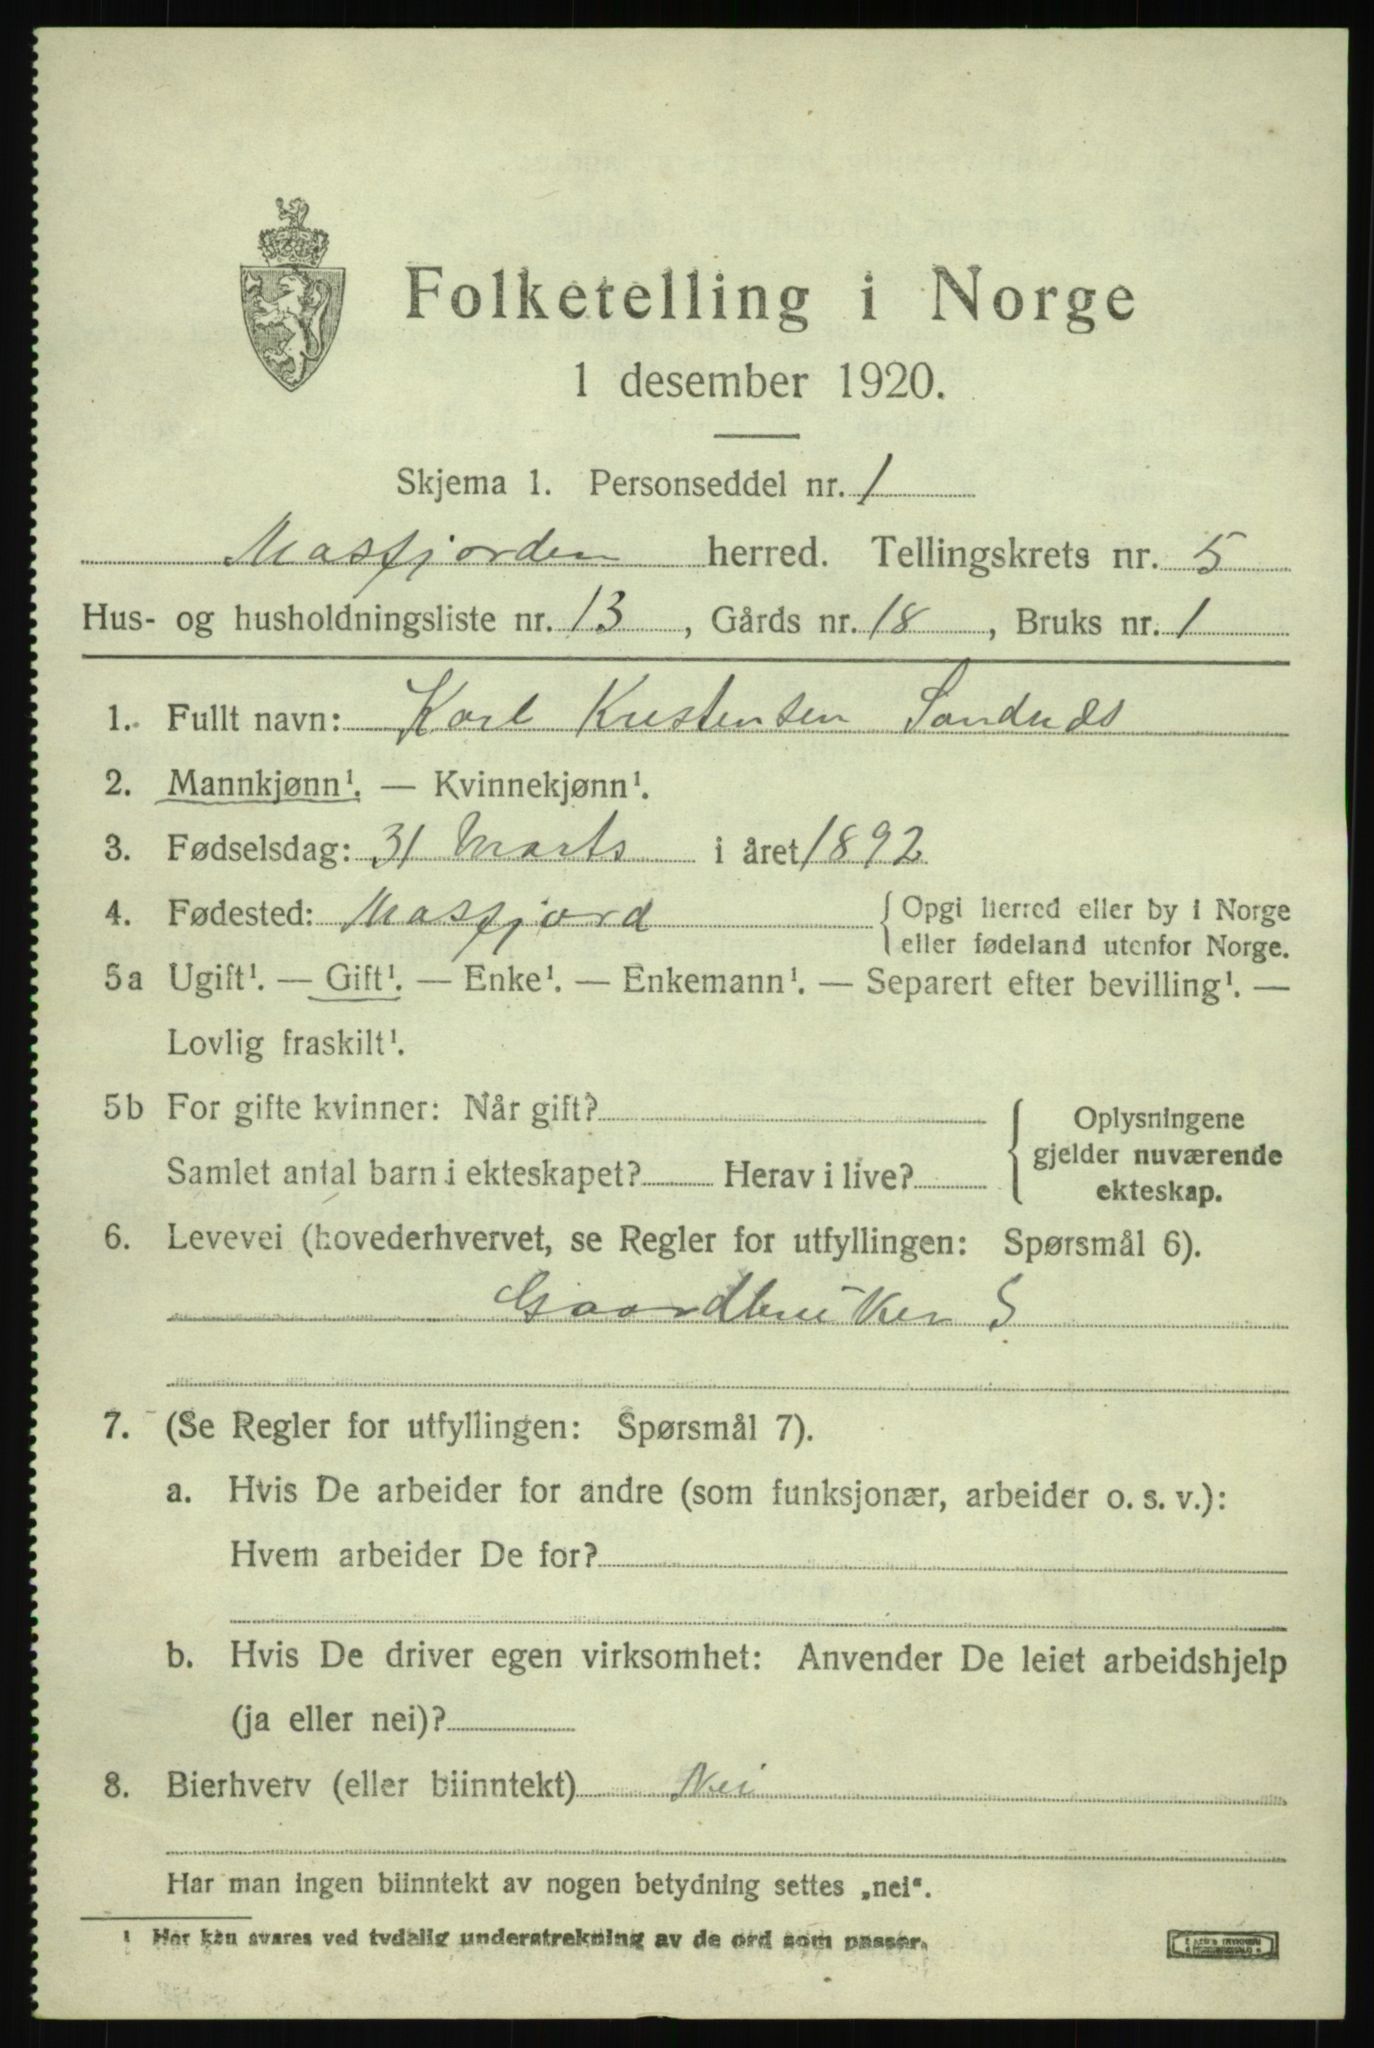 Folketelling i Norge
1 desember 1920.
Skjema 1. Personseddel nr. 1
Masfjorden herred. Tellingskrets nr. 5
Hus- og husholdningsliste nr. 13, Gårds nr. 18, Bruks nr. 1
1. Fullt navn: Karl Kristensen Sandnæs
2. Mannkjønn¹. — Kvinnekjønn¹.
3. Fødselsdag: 31 Marts i året 1892
4. Fødested: Masfjord { Opgi herred eller by i Norge
eller fødeland utenfor Norge.
5a Ugift¹. — Gift¹. — Enke¹. — Enkemann¹. — Separert efter bevilling¹. —
Lovlig fraskilt¹.
5b For gifte kvinner: Når gift?
Samlet antal barn i ekteskapet? Herav i live?
{ Oplysningene
gjelder nuværende
ekteskap.
6. Levevei (hovederhvervet, se Regler for utfyllingen: Spørsmål 6).
Gaardbruker S
7. (Se Regler for utfyllingen: Spørsmål 7).
a. Hvis De arbeider for andre (som funksjonær, arbeider o. s. v.):
Hvem arbeider De for?
b. Hvis De driver egen virksomhet: Anvender De leiet arbeidshjelp
(ja eller nei)?
8. Bierhverv (eller biinntekt) Nei
Har man ingen biinntekt av nogen betydning settes „nei“.
¹ Her kan svares ved tydelig understrekning av de ord som passer.